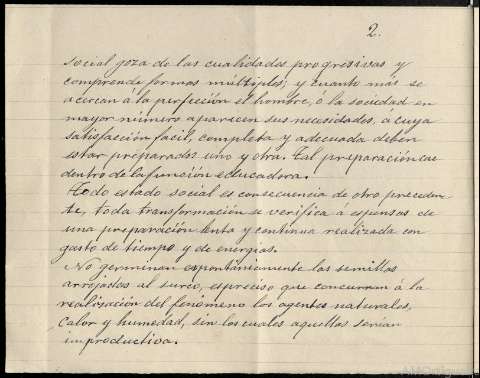 2.
social goza de las cualidades progresivas y
comprende formas múltiples; y cuanto más se
acercan á la perfección el hombre, ó la sociedad en
mayor número aparecen sus necesidades, a cuya
satisfacción fácil, completa y adecuada deben
estar preparados uno y otra. Tal preparación cae
dentro de la función educadora.
Todo estado social es consecuencia de otro preceden-
te, toda transformación se verifica á espensas de
una preparación lenta y continua realizada con
gasto de tiempo y de energías.
No germinan espontáneamente las semillas
arrojadas al surco, es preciso que concurran á la
realización del fenómeno los agentes naturales,
calor y humedad, sin los cuales aquellas serían
improductivas.